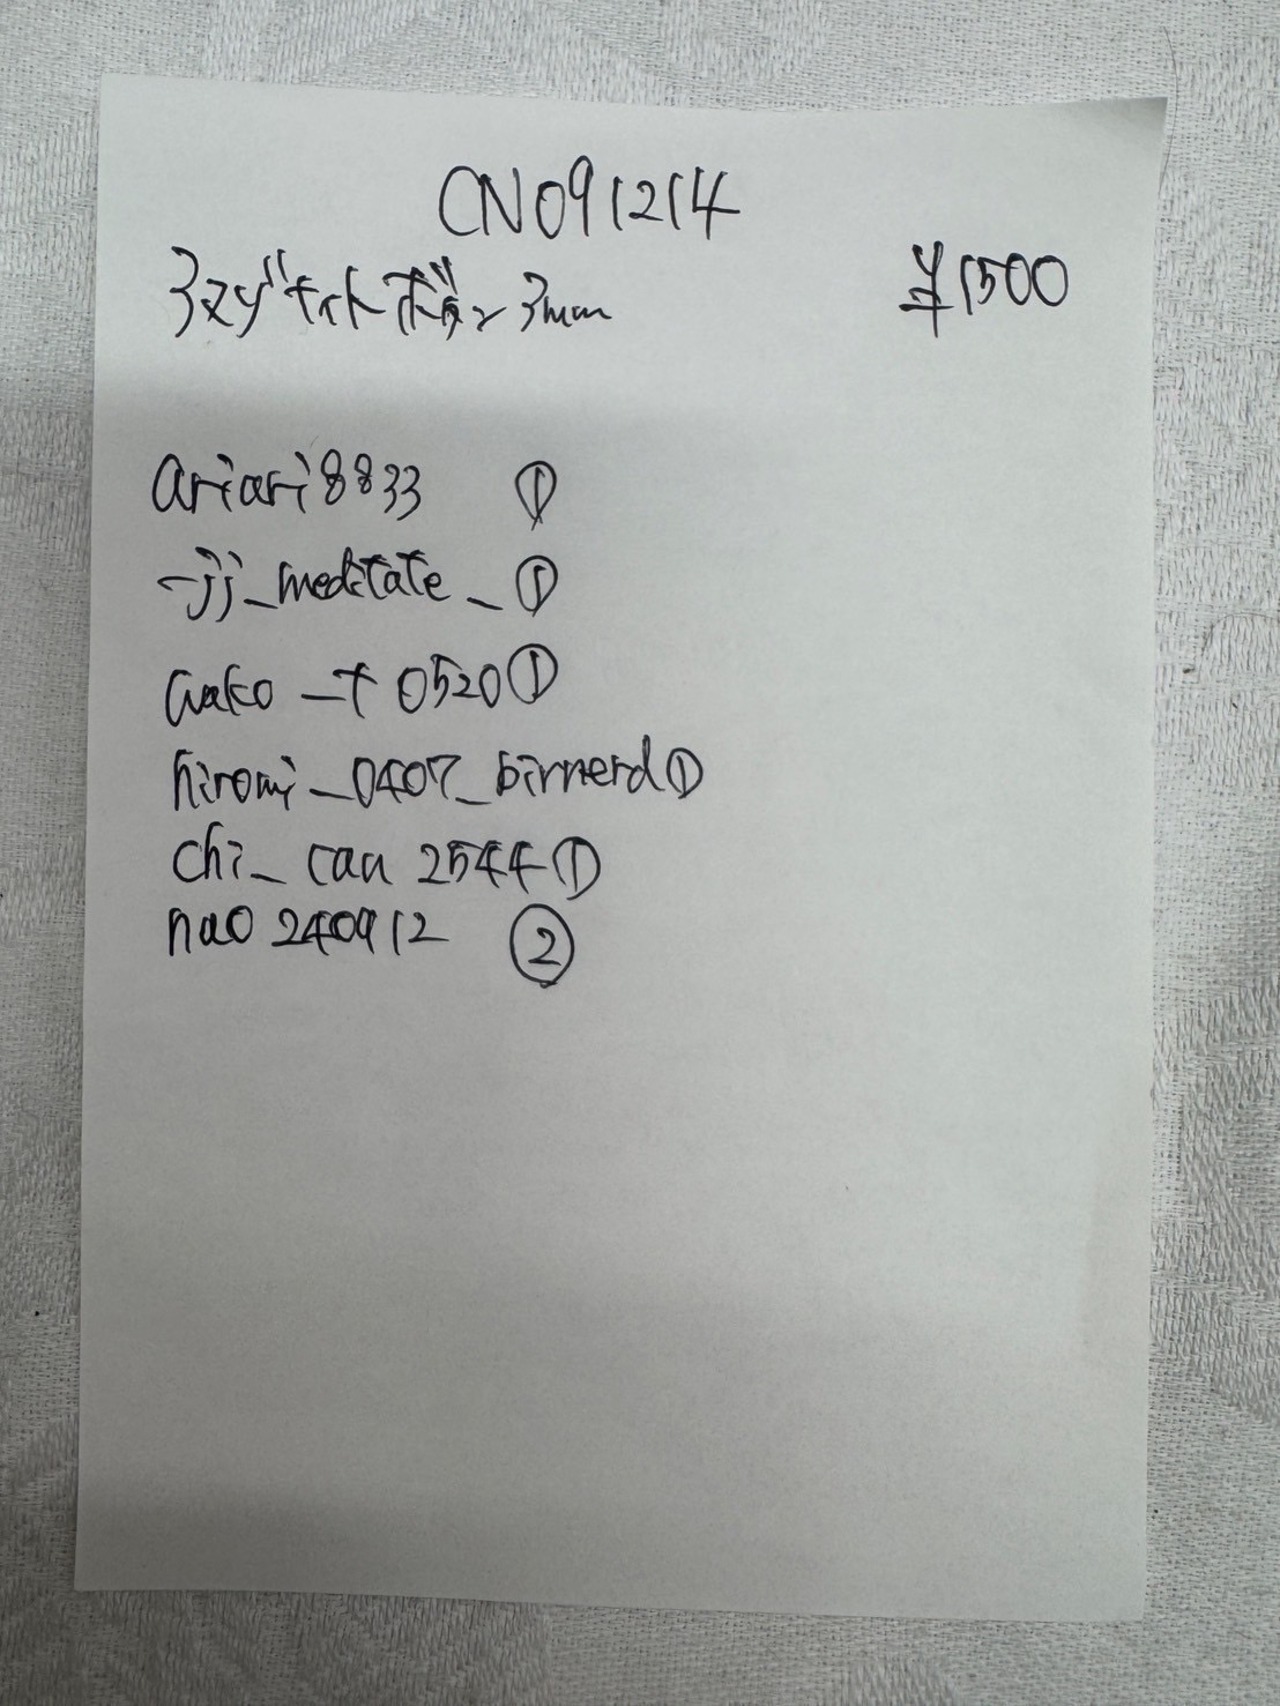 CN091214
ボタン 3mm ¥1500
ariari8833 ①
-jj_meditate_ ①
wako_t 0520 ①
hiromi_0407_birnerd ①
chi_can 2544 ①
nao 240912 ②